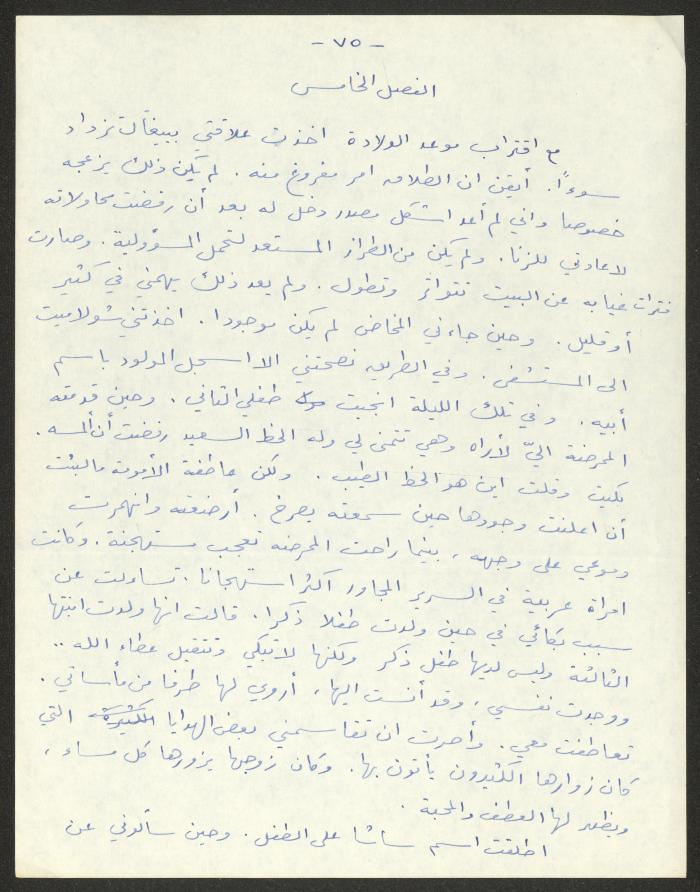 - ٧٥ -
الفصل الخامس
مع اقتراب موعد الولادة اخذت علاقتي بييغال تزداد
سوءاً. أيقن ان الطلاق امر مفروغ منه. لم يكن ذلك يزعجه
خصوصا واني لم أعد اشكل مصدر دخل له بعد أن رفضت محاولاته
لاعادتي للزنا. ولم يكن من الطراز المستعد لتحمل المسؤولية. وصارت
فترات غيابه عن البيت تتواتر وتطول. ولم يعد ذلك يهمني في كثير
أو قليل. وحين جاءني المخاض لم يكن موجودا. اخذتني شولاميت
الى المستشفى. وفي الطريق نصحتني الا اسجل المولود باسم
أبيه. وفي تلك الليلة انجبت طفلي الثاني. وحين قدمته
الممرضة اليّ لأراه وهي تتمنى لي وله الحظ السعيد رفضت أن ألمسه.
بكيت وقلت اين هو الحظ الطيب. ولكن عاطفة الأمومة ما لبثت
أن اعلنت وجودها حين سمعته يصرخ. أرضعته وانهمرت
دموعي على وجهه، بينما راحت الممرضة تعجب مستهجنة. وكانت
امرأة عربية في السرير المجاور اكثر استهجانا. تساءلت عن
سبب بكائي في حين ولدت طفلا ذكرا. قالت انها ولدت ابنتها
الثالثة وليس لديها طفل ذكر ولكنها لا تبكي وتتقبل عطاء الله ..
ووجدت نفسي، وقد أنست اليها، أروي لها طرفا من مأساتي.
تعاطفت معي. وأصرت ان تقاسمني بعض الهدايا الكثيرة التي
كان زوارها الكثيرون يأتون بها. وكان زوجها يزورها كل مساء،
ويظهر لها العطف والمحبة.
اطلقت اسم ساشا على الطفل. وحين سألوني عن